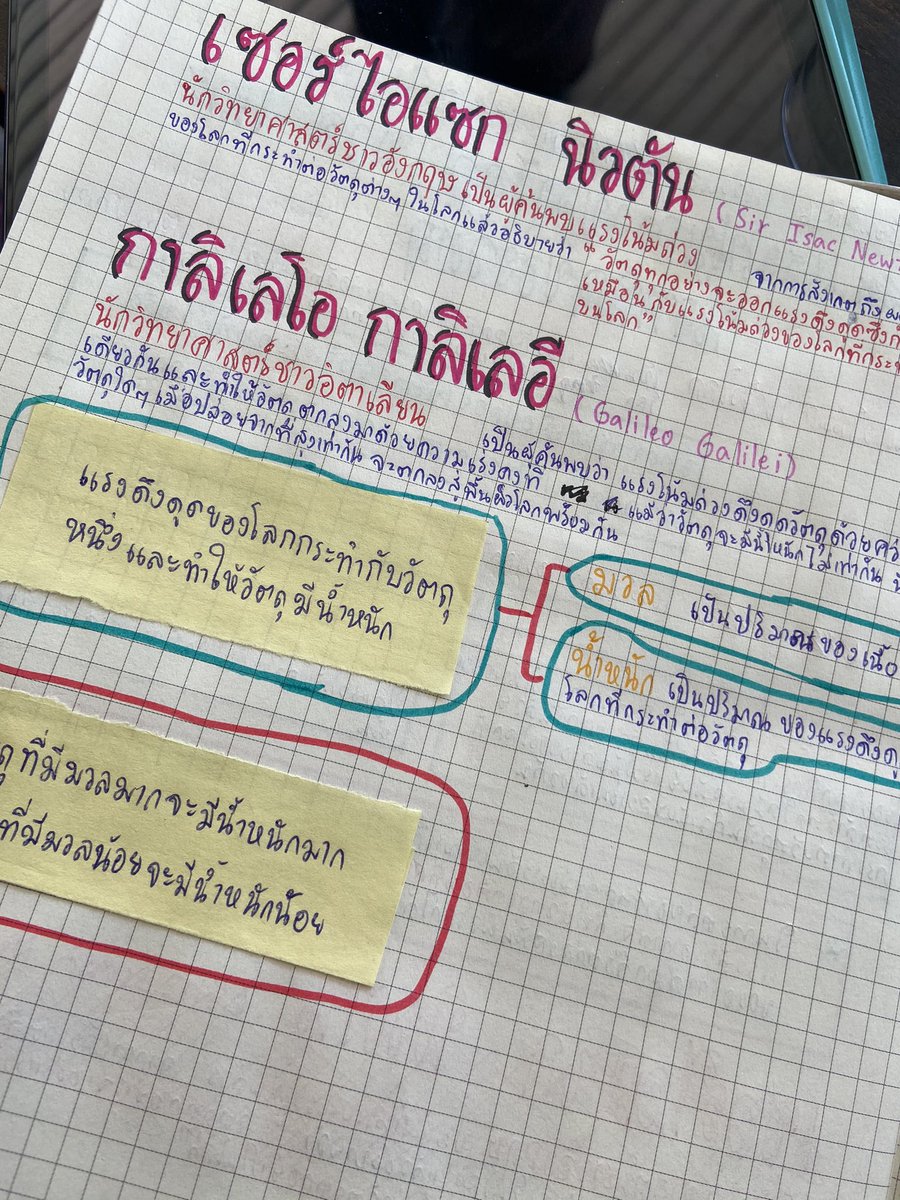 เซอร์ไอแซก นิวตัน (Sir Isac New
นักวิทยาศาสตร์ชาวอังกฤษ เป็นผู้ค้นพบแรงโน้มถ่วง จากการสังเกตถึง
ของโลกที่กระทำต่อวัตถุต่างๆ ในโลกแล้วอธิบายว่า "วัตถุทุกอย่างจะออกแรงดึงดูดซึ่งกั
เหมือนกับแรงโน้มถ่วงของโลกที่กระ
บนโลก"
กาลิเลโอ กาลิเลอี (Galileo Galilei)
นักวิทยาศาสตร์ชาวอิตาเลียน เป็นผู้ค้นพบว่า แรงโน้มถ่วงดึงดูดวัตถุด้วย
เดียวกัน และทำให้วัตถุตกลงมาด้วยความแรงคงที่ แม้ว่าวัตถุจะมีน้ำหนักไม่เท่ากัน
วัตถุใดๆ เมื่อปล่อยจากที่สูงเท่ากัน จะตกลงสู่พื้นผิวโลกพร้อมกัน
แรงดึงดูดของโลกกระทำกับวัตถุ
หนึ่งและทำให้วัตถุมีน้ำหนัก
มวล เป็นปริมาณของเนื้อ
น้ำหนัก เป็นปริมาณ ของแรงดึงดู
โลกที่กระทำต่อวัตถุ
ที่มีมวลมากจะมีน้ำหนักมาก
ที่มีมวลน้อยจะมีน้ำหนักน้อย